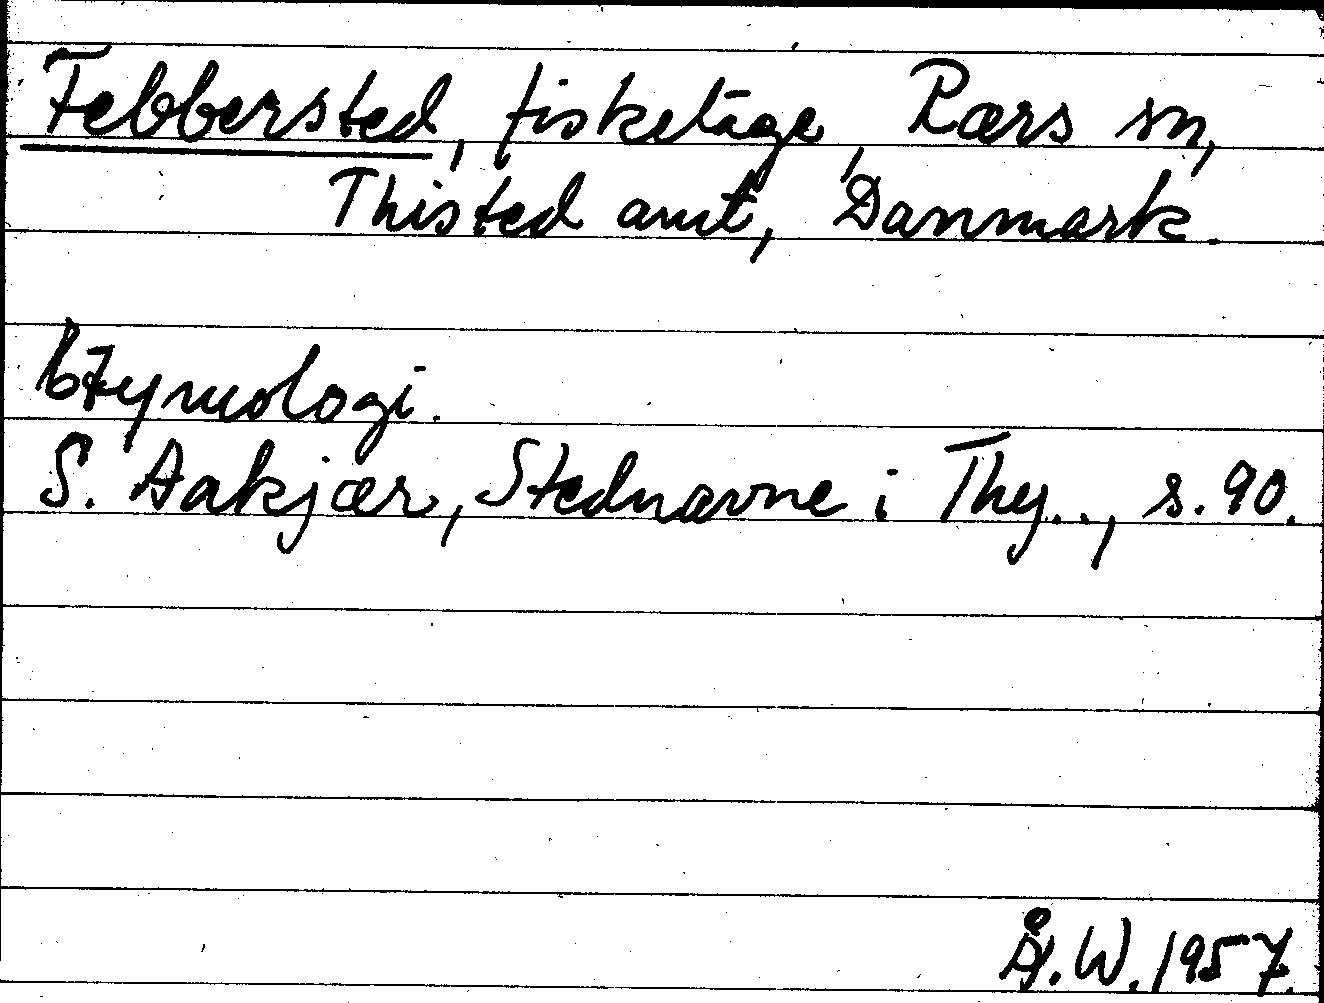 Febbersted, fisketåge, Rærs sn,
Thisted amt, Danmark.
Etymologi.
S. Aakjær, Stednavne i Thy.., s. 90.
Å.W. 1957.